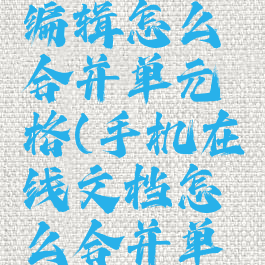 编辑怎么
合并单元
格(手机在
线文档怎
么合并单